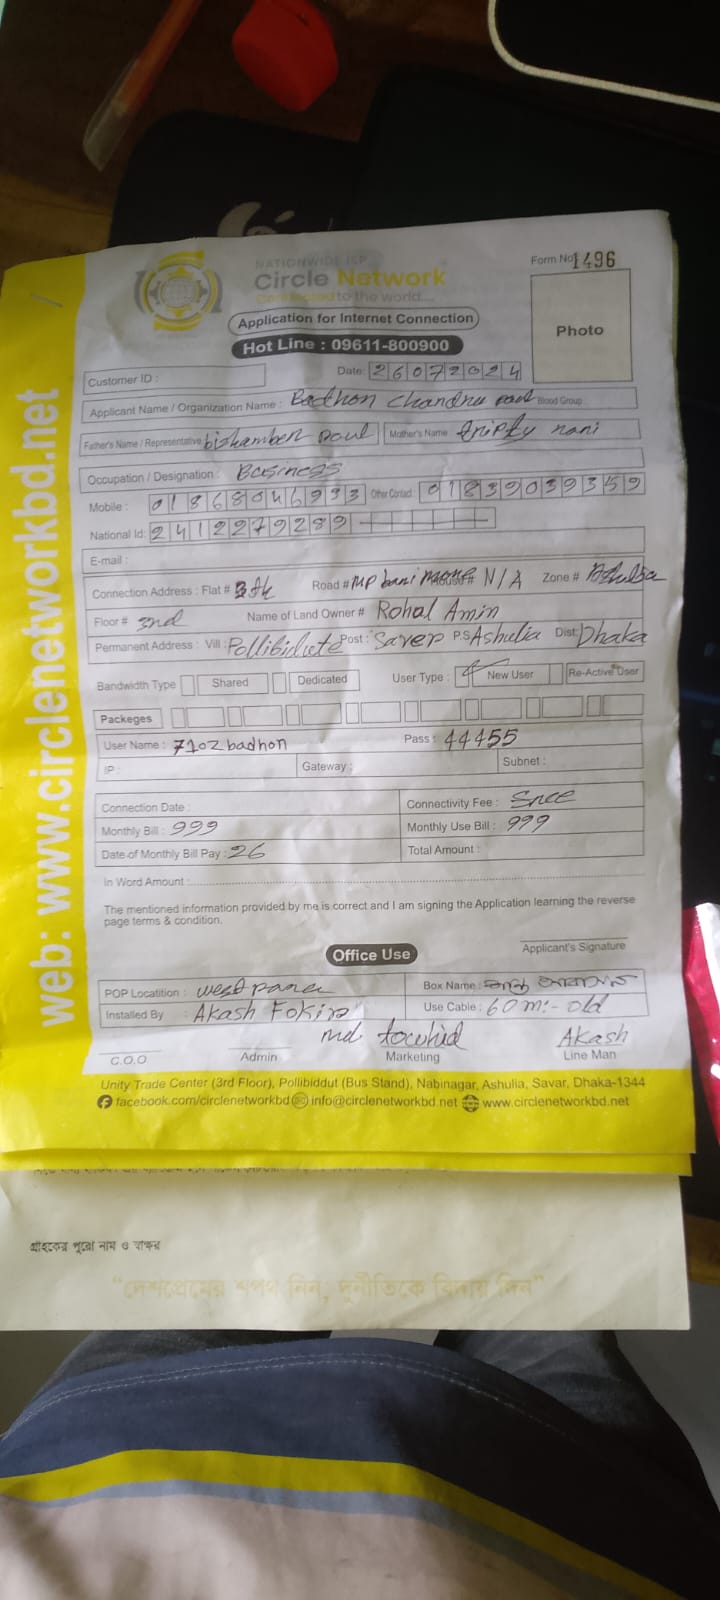 NATIONWIDE ISP
Circle Network
Connected to the world....
Form No 1496
Application for Internet Connection
Hot Line : 09611-800900
Photo
Customer ID :
Date: 26072024
Applicant Name / Organization Name : Badhon Chandra paul Blood Group
Father's Name / Representative bishamber paul Mother's Name tripty rani
Occupation / Designation : Business
Mobile : 01868046933 Other Contact : 01839039359
National Id: 2412279289
E-mail :
Connection Address : Flat # Road # House # N/A Zone # Ashulia
Floor # 2nd Name of Land Owner # Rohal Amin
Permanent Address : Vill : Pollibidute Post : Saver P.S Ashulia Dist: Dhaka
Bandwidth Type Shared Dedicated User Type : New User Re-Active User
Packeges
User Name : 7102badhon Pass : 44455
IP : Gateway : Subnet :
Connection Date : Connectivity Fee : Free
Monthly Bill : 999 Monthly Use Bill : 999
Date of Monthly Bill Pay : 26 Total Amount :
In Word Amount :
The mentioned information provided by me is correct and I am signing the Application learning the reverse
page terms & condition.
Applicant's Signature
Office Use
POP Locatition : west para Box Name :
Installed By : Akash Fokir Use Cable : 60 m:- old
md towhid Akash
C.O.O Admin Marketing Line Man
Unity Trade Center (3rd Floor), Pollibiddut (Bus Stand), Nabinagar, Ashulia, Savar, Dhaka-1344
facebook.com/circlenetworkbd info@circlenetworkbd.net www.circlenetworkbd.net
web: www.circlenetworkbd.net
গ্রাহকের পুরো নাম ও স্বাক্ষর
"দেশপ্রেমের শপথ নিন, দুর্নীতিকে বিদায় দিন"